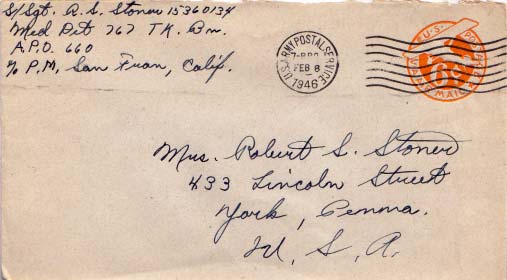 S/Sgt. R. S. Stoner 15360134
Med Det 767 TK. Bn.
A.P.O. 660
c/o P.M. San Fran, Calif.
U.S. ARMY POSTAL SERVICE
FEB 8
1946
U.S. POSTAGE
VIA AIR MAIL
6¢
Mrs. Robert S. Stoner
433 Lincoln Street
York, Penna.
U. S. A.